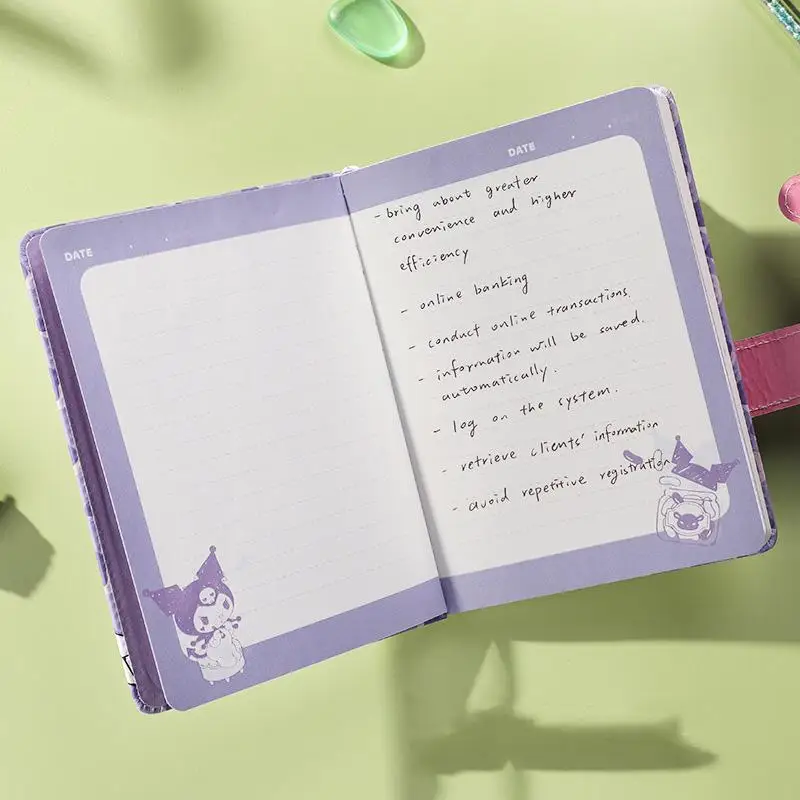 DATE
DATE
- bring about greater
convenience and higher
efficiency
- online banking
- conduct online transactions.
- information will be saved.
automatically.
- log on the system.
- retrieve clients' information
- avoid repetitive registration